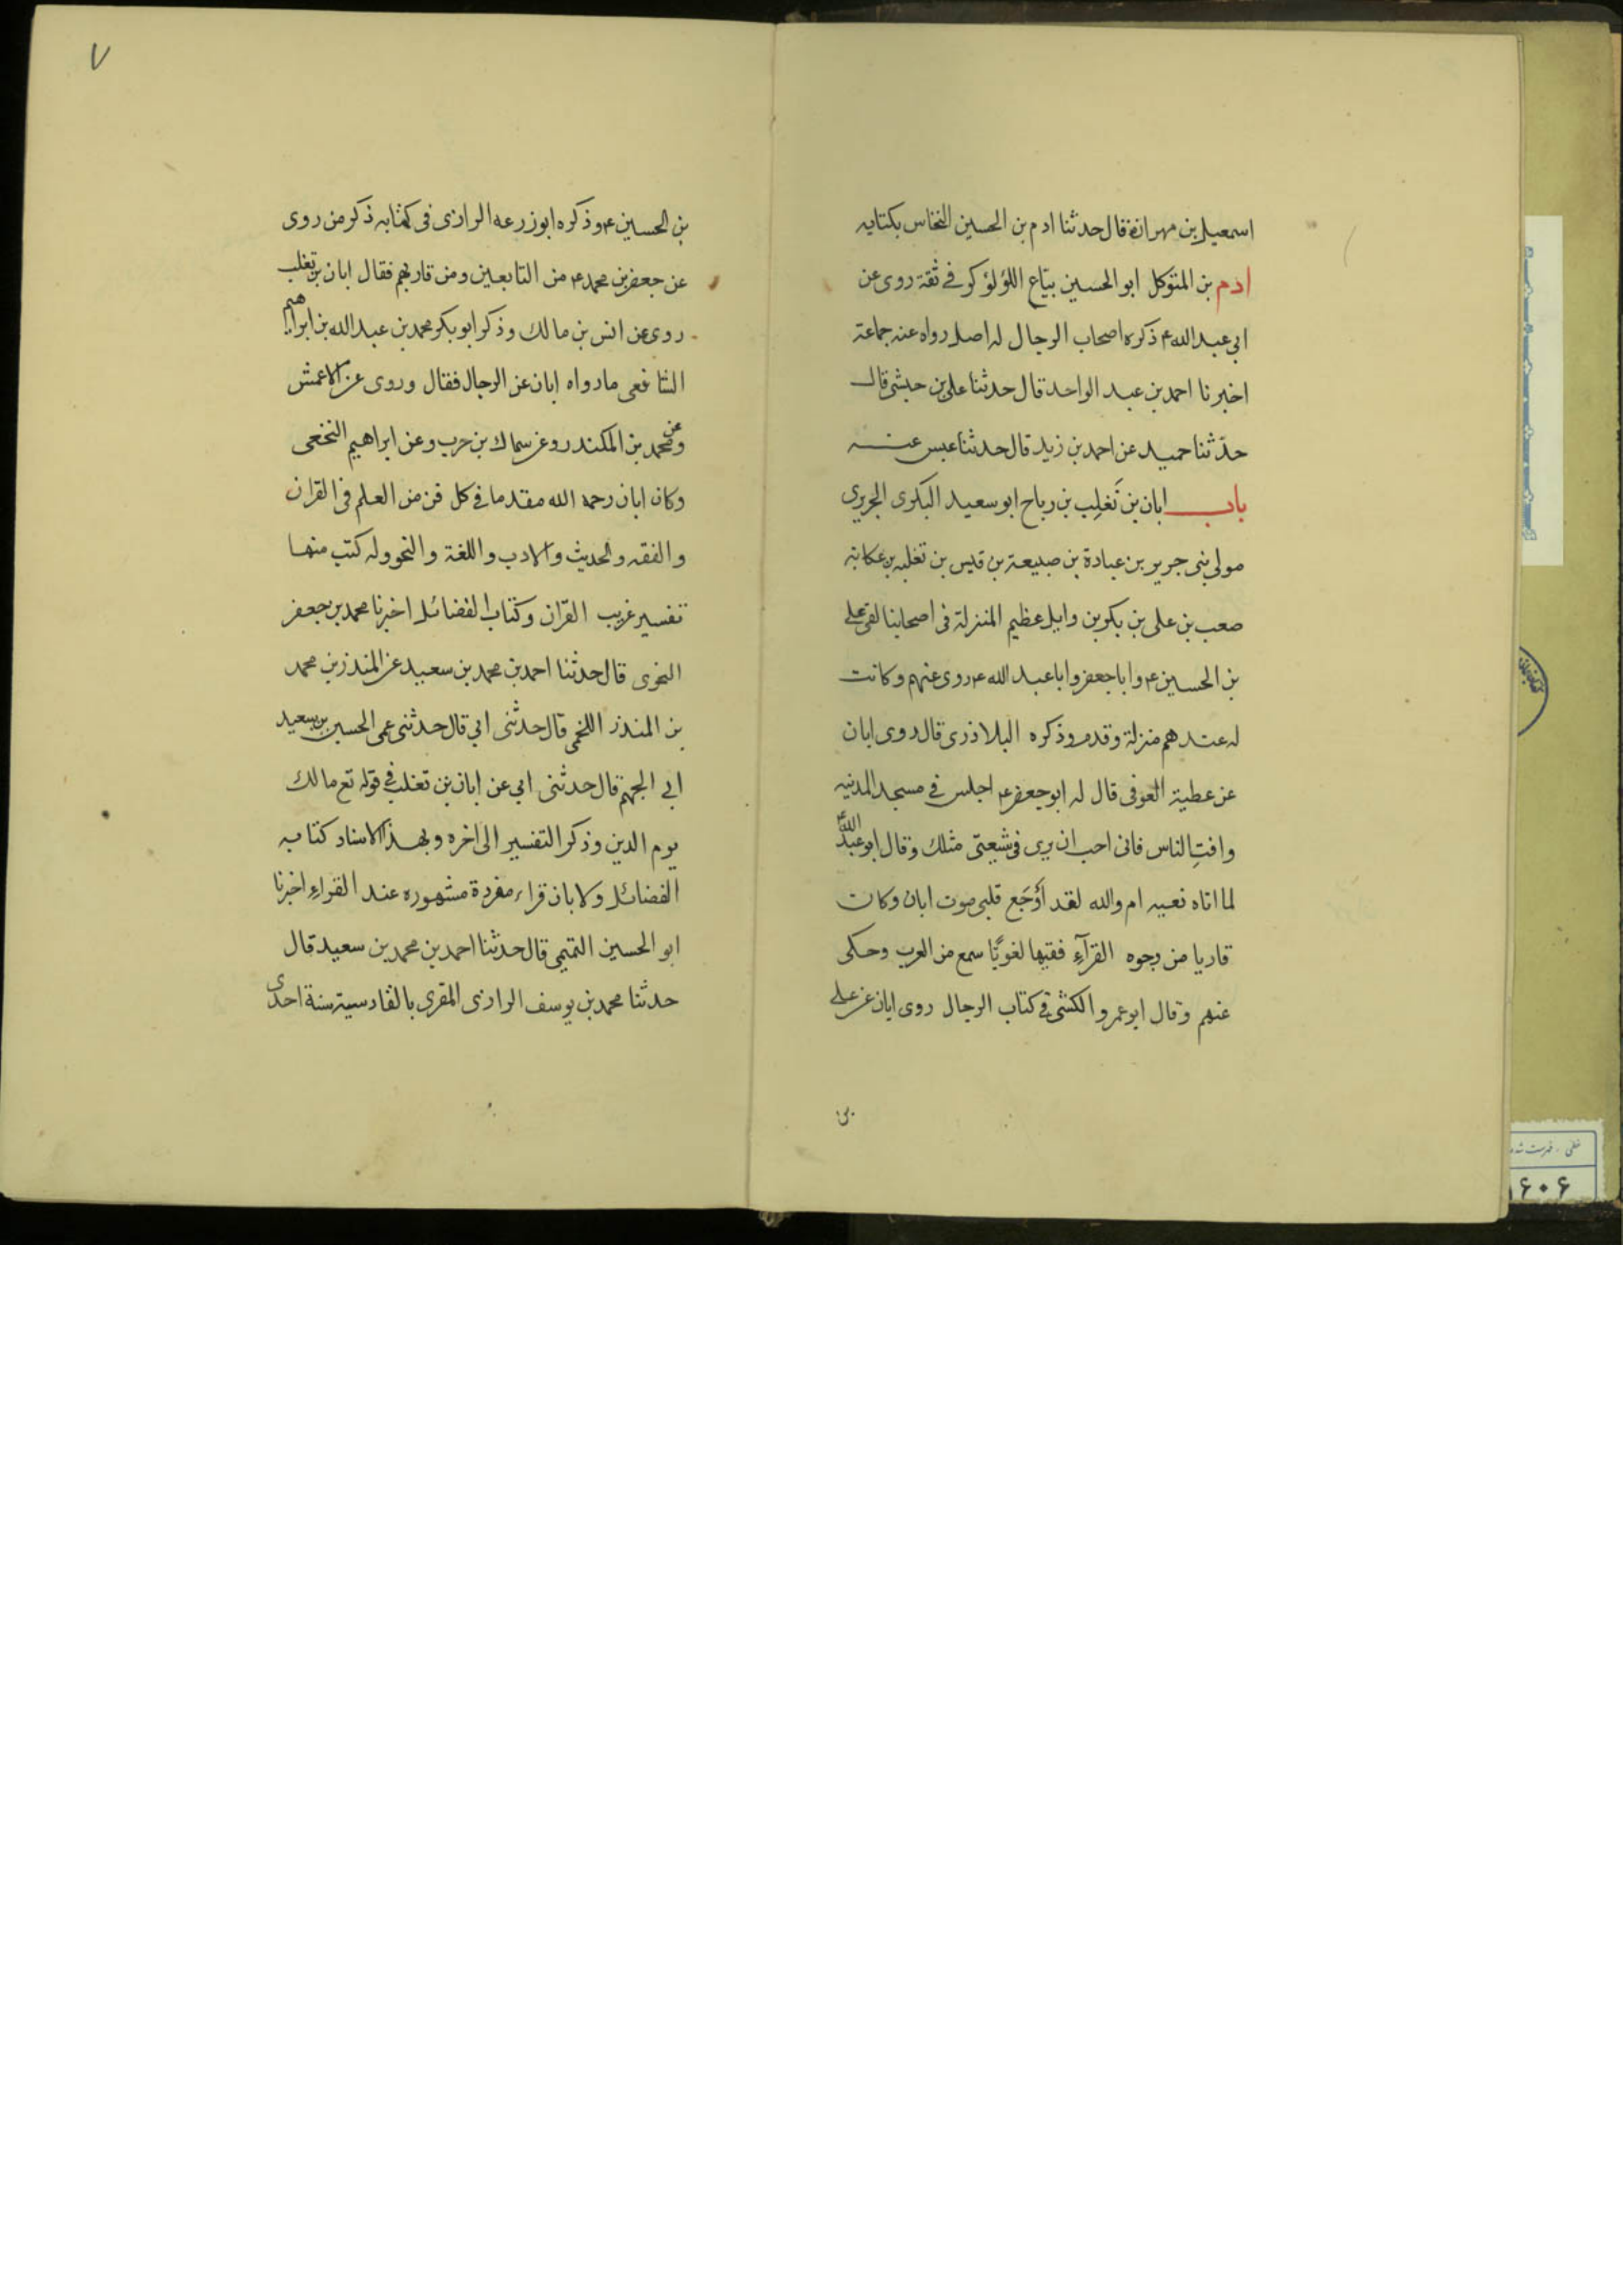 اسمعيل بن مهران قال حدثنا ادم بن الحسين النخاس بكتابه
ادم بن المتوكل ابو الحسين بيّاع اللؤلؤ كوفى ثقة روى عن
ابي عبد الله ع ذكره اصحاب الرجال له اصل رواه عنه جماعة
اخبرنا احمد بن عبد الواحد قال حدثنا على بن حبشى قال
حدّثنا حميد عن احمد بن زيد قال حدثنا عبس عنه
باب ابان بن تَغلِب بن رباح ابو سعيد البكرى الجريرى
مولى بنى جرير بن عبادة بن ضبيعة بن قيس بن تغلبه بن عكابه
صعب بن على بن بكر بن وايل عظيم المنزلة فى اصحابنا لقى على
بن الحسين ع و ابا جعفر و ابا عبد الله ع روى عنهم و كانت
له عندهم منزلة و قدم و ذكره البلاذرى قال روى ابان
عن عطية العوفى قال له ابو جعفر ع اجلس فى مسجد المدنيه
و افتِ الناس فانى احب ان يرى فى شيعتى مثلك و قال ابو عبد الله ع
لما اتاه نعيه ام والله لقد أَوْجَع قلبى موت ابان و كان
قاريا من وجوه القرآء فقيها لغويًّا سمع من العرب و حكى
عنهم و قال ابو عمرو الكشى فى كتاب الرجال روى ابان عن على
بن
بن الحسين ع و ذكره ابو زرعه الرازى فى كتابه ذكر من روى
عن جعفر بن محمد ع من التابعين و من قاربهم فقال ابان بن تغلب
روى عن انس بن مالك و ذكر ابو بكر محمد بن عبد الله بن ابراهيم
الشافعى ما رواه ابان عن الرجال فقال و روى عن الاعمش
و عن محمد بن المكندر و عن سماك بن حرب و عن ابراهيم النخعى
و كان ابان رحمه الله مقدما فى كل فن من العلم فى القران
و الفقه و الحديث و الادب و اللغة و النحو و له كتب منها
تفسير غريب القرآن و كتاب الفضائل اخبرنا محمد بن جعفر
النحوى قال حدثنا احمد بن محمد بن سعيد عن المنذر بن محمد
بن المنذر اللخمى قال حدثنى ابى قال حدثنى عمى الحسين بن سعيد
ابى الجهم قال حدثنى ابى عن ابان بن تغلب فى قوله تع مالك
يوم الدين و ذكر التفسير الى اخره و بهذا الاسناد كتابه
الفضائل و لابان قراء مفردة مشهوره عند القراء اخبرنا
ابو الحسين التميمى قال حدثنا احمد بن محمد بن سعيد قال
حدثنا محمد بن يوسف الرازى المقرى بالقادسية سنة احدى
٧
خطى . فهرست شده
۱۶۰۶